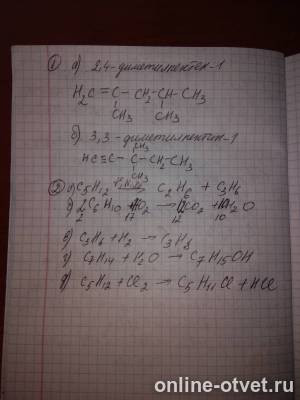 ① а) 2,4-диметилпентен-1
H₂C=C-CH₂-CH-CH₃
CH₃ CH₃
б) 3,3-диметилпентин-1
CH₃
HC≡C-C-CH₂-CH₃
CH₃
② а) C₅H₁₂ C₂H₆ + C₃H₆
2C₆H₁₀ O₂ → CO₂ + H₂O
2 17 12 10
в) C₃H₆ + H₂ → C₃H₈
г) C₇H₁₄ + H₂O → C₇H₁₅OH
д) C₅H₁₂ + Cl₂ → C₅H₁₁Cl + HCl
online-otvet.ru